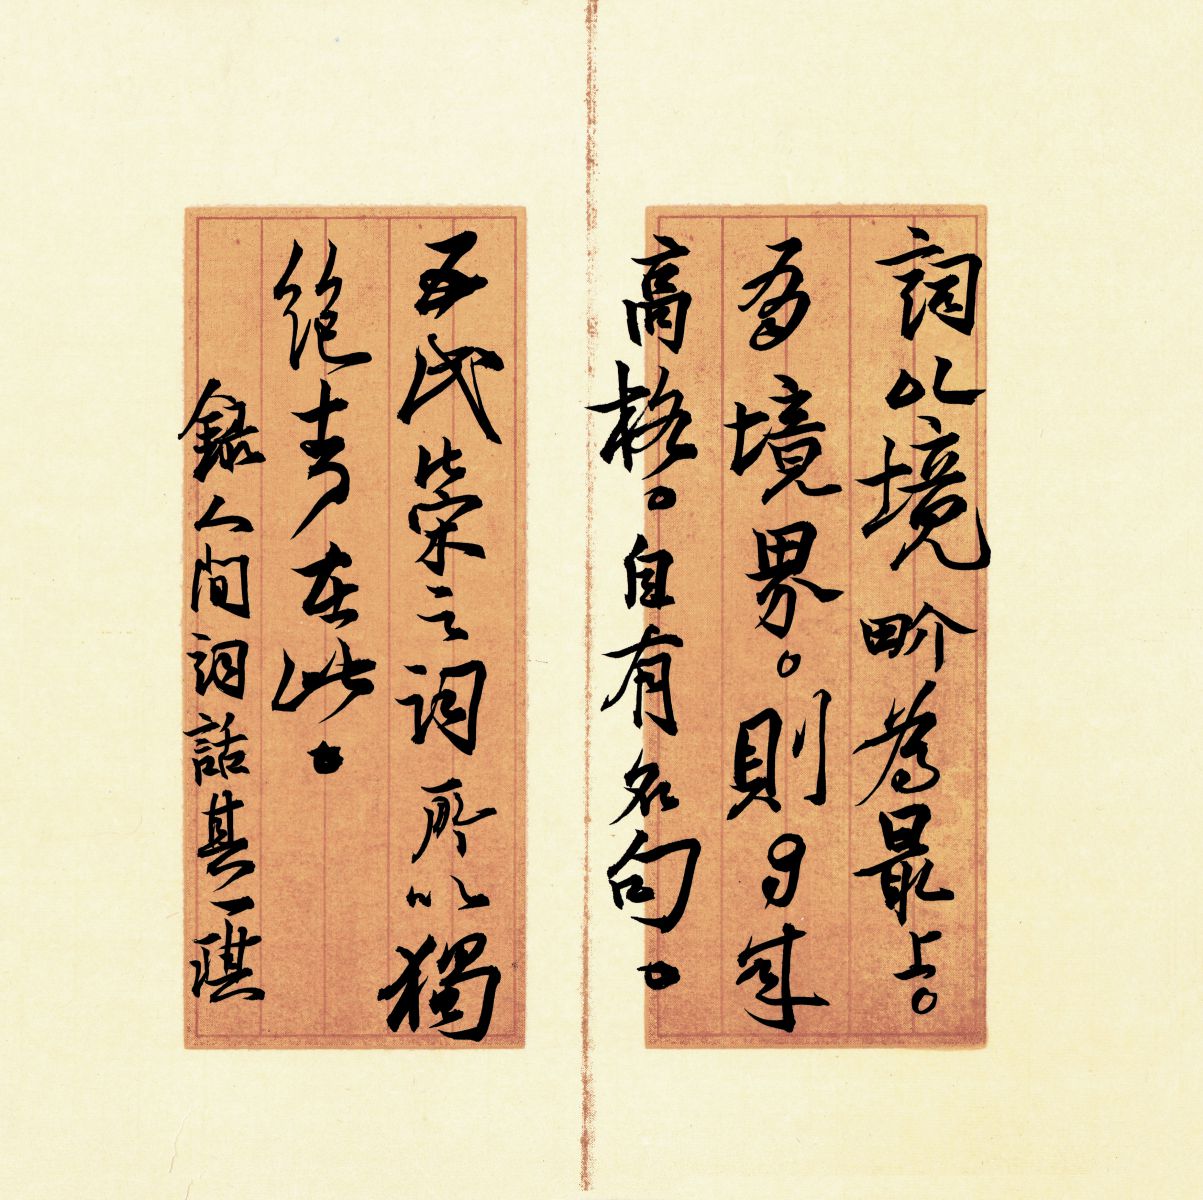 詞以境畍為最上。
有境界。則自成
高格。自有名句。
五代北宋之詞所以獨
絕者在此。
錄人間詞話其一琪